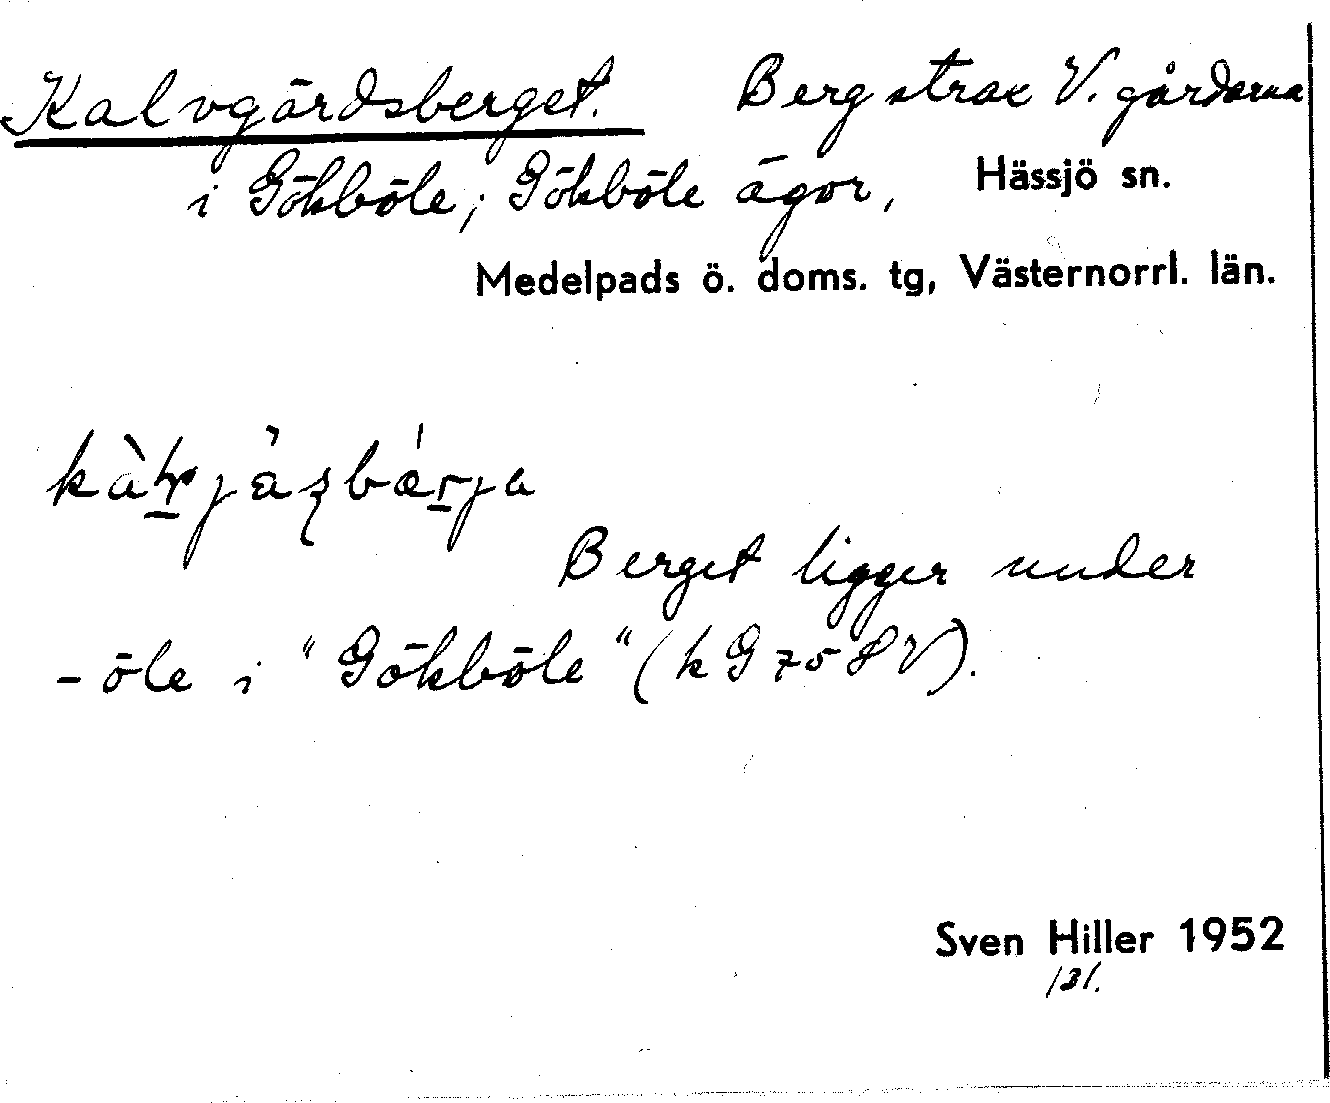 Kalvgårdsberget. Berg strax V. gårdarna
i Gökböle; Gökböle ägor, Hässjö sn.
Medelpads ö. doms. tg, Västernorrl. län.
Berget ligger under
- öle i "Gökböle" (k G 75 8 V).
Sven Hiller 1952
131.